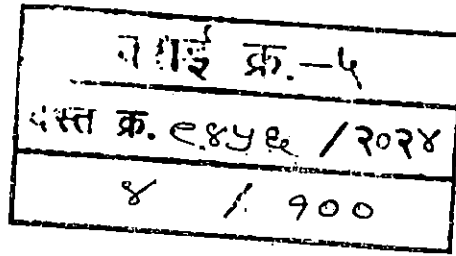 वसई क्र.-५
दस्त क्र. ९४५६ /२०२४
४ / १००